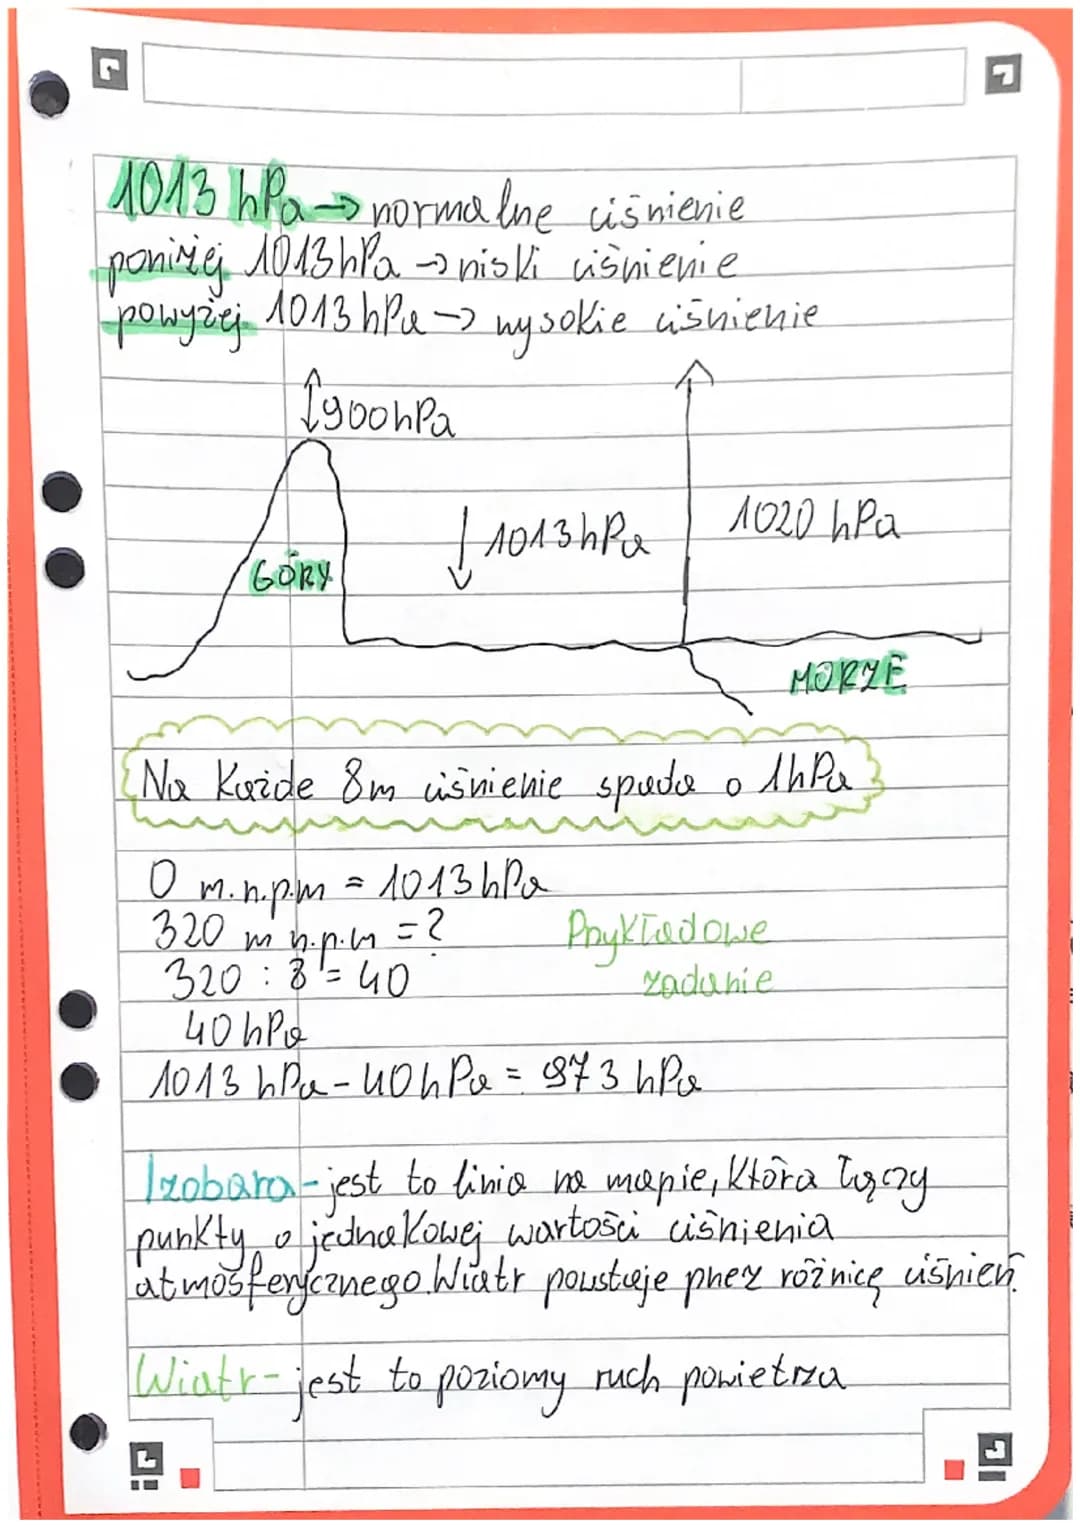 1013 hPa → normalne ciśnienie
poniżej 1013hPa → niski ciśnienie
powyżej 1013 hPa → wysokie ciśnienie
↕900hPa
↓ 1013hPa
1020 hPa
GÓRY
MORZE
Na Każde 8m ciśnienie spada o 1hPa
0 m.n.p.m = 1013hPa
320 m n.p.m = ?
Przykładowe
320 : 8 = 40
zadanie
40 hPa
1013 hPa - 40hPa = 973 hPa
Izobara - jest to linia na mapie, Która łączy
punkty o jednakowej wartości ciśnienia
atmosferycznego. Wiatr powstaje przez różnicę ciśnień.
Wiatr - jest to poziomy ruch powietrza